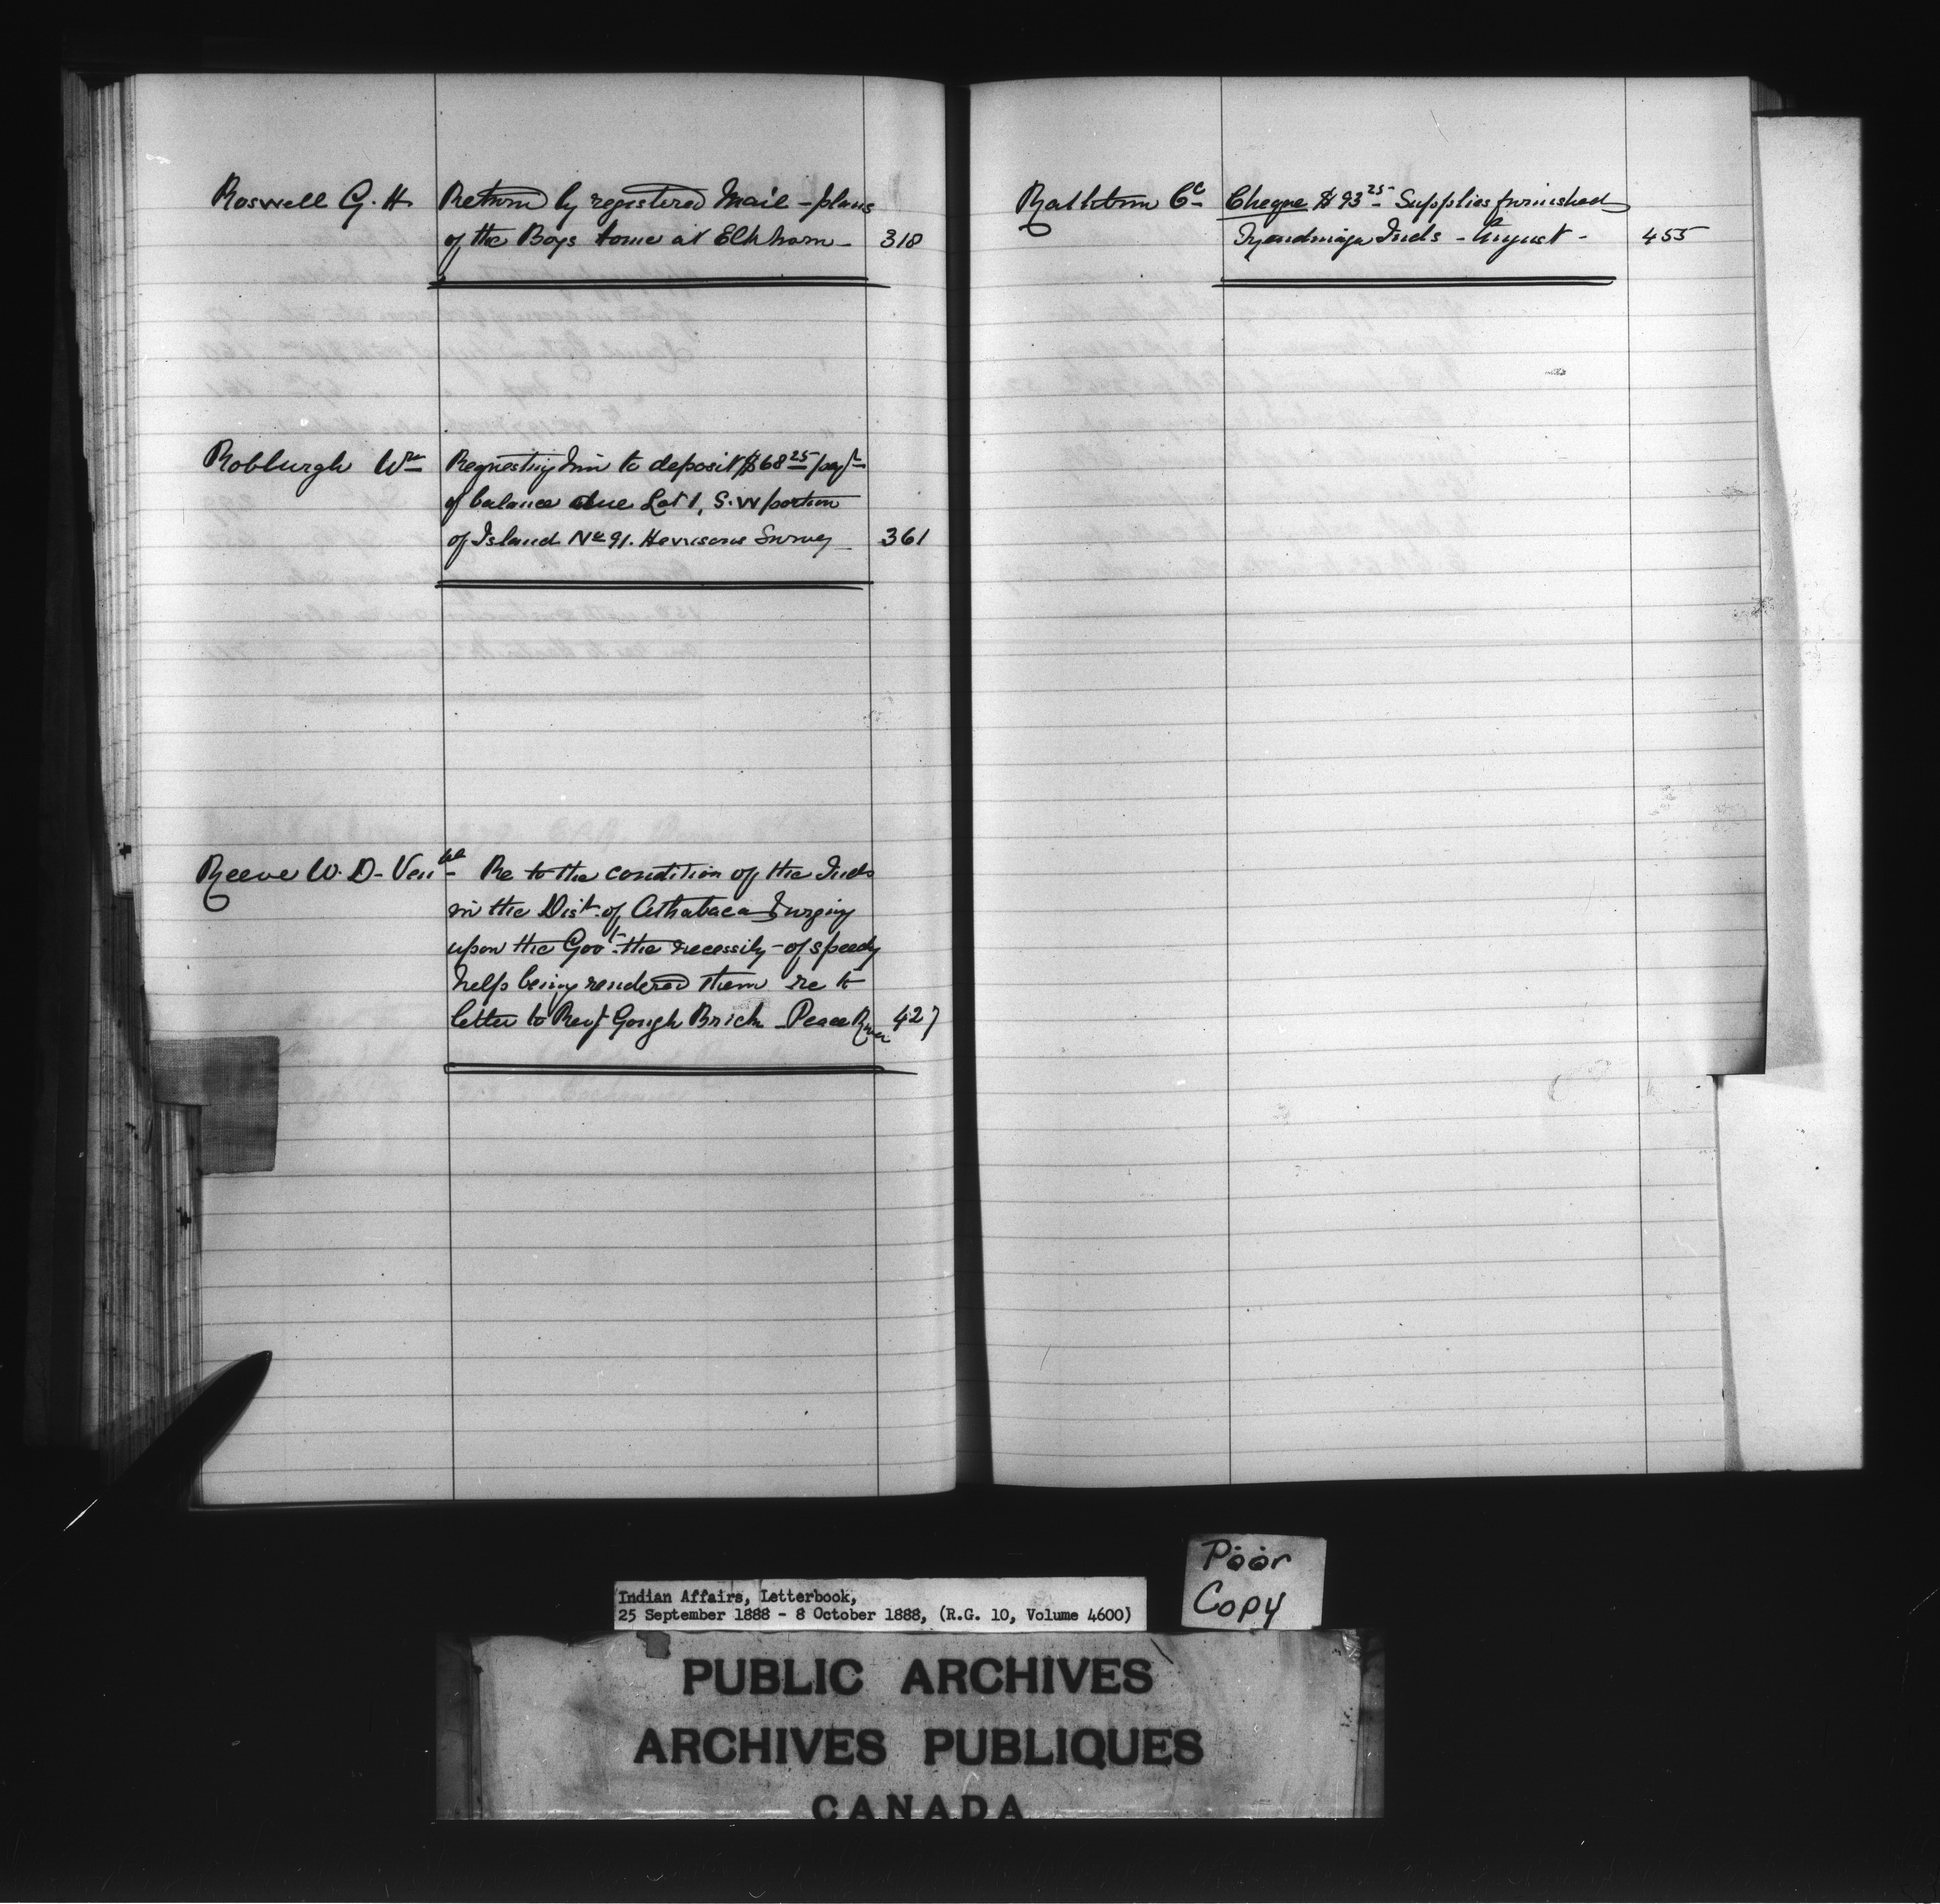 Roswell G. H. Return by registered Mail - plans
of the Boys home at Elkhorn - 318
Robburgh Wm Requesting him to deposit $68 25 pay't
of balance due Lot 1, S.W portion
of Island No 91. Hewsons Survey 361
Reeve W. D - Ven ble Re to the condition of the Inds
in the Dist. of Athabaca & urging
upon the Gov't. the necessity - of speedy
help being rendered them re to
letter to Revd Gough Brick - Peace River 427
Rathbun Co Cheque $93 25 - Supplies furnished
Tyendinaga Inds - August - 455
Poor
Copy
Indian Affairs, Letterbook,
25 September 1888 - 8 October 1888, (R.G. 10, Volume 4600)
PUBLIC ARCHIVES
ARCHIVES PUBLIQUES
CANADA